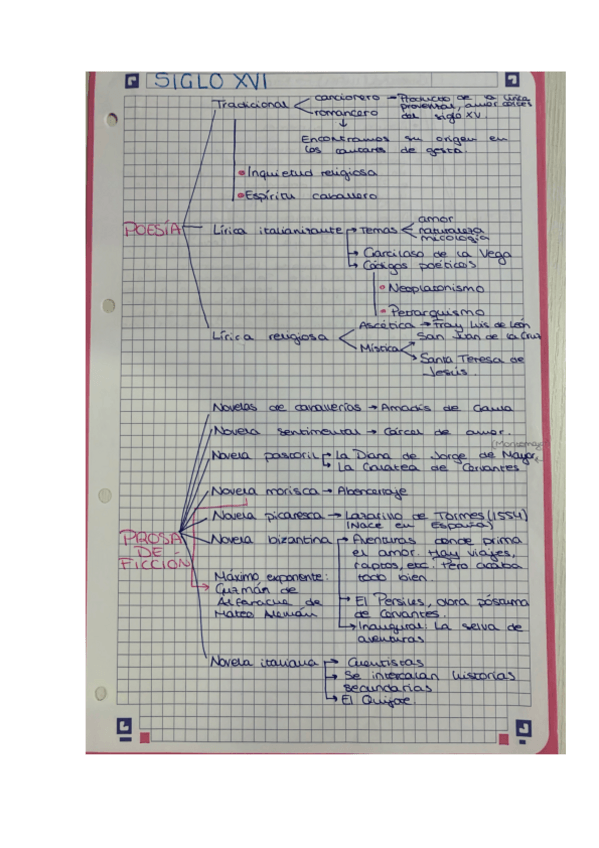 SIGLO XVI
POESÍA
Tradicional
cancionero → Producto de la lírica
provenzal, amor cortés
del siglo XV.
romancero
↓
Encontramos su origen en
los cantares de gesta.
Inquietud religiosa
Espíritu caballero
Lírica italianizante → Temas
amor
naturaleza
micología
→ Garcilaso de la Vega
→ Códigos poéticos
Neoplatonismo
Petrarquismo
Lírica religiosa
Ascética → Fray Luis de León
Mística
San Juan de la Cruz
Santa Teresa de
Jesús.
PROSA
DE
FICCIÓN
Novelas de caballerías → Amadís de Gaula
Novela sentimental → Cárcel de amor.
Novela pastoril → La Diana de Jorge de
→ La Galatea de Cervantes
Novela morisca → Abencerraje
Novela picaresca → Lazarillo de Tormes (1554)
(Nace en España)
Máximo exponente:
Guzmán de
Alfarache de
Mateo Alemán
Novela bizantina → Aventuras donde prima
el amor. Hay viajes,
raptos, etc. Pero acaba
todo bien.
→ El Persiles, obra póstuma
de Cervantes.
→ Inaugural: La selva de
aventuras
Novela italiana → Cuentistas
→ Se intercalan historias
secundarias
→ El Quijote.